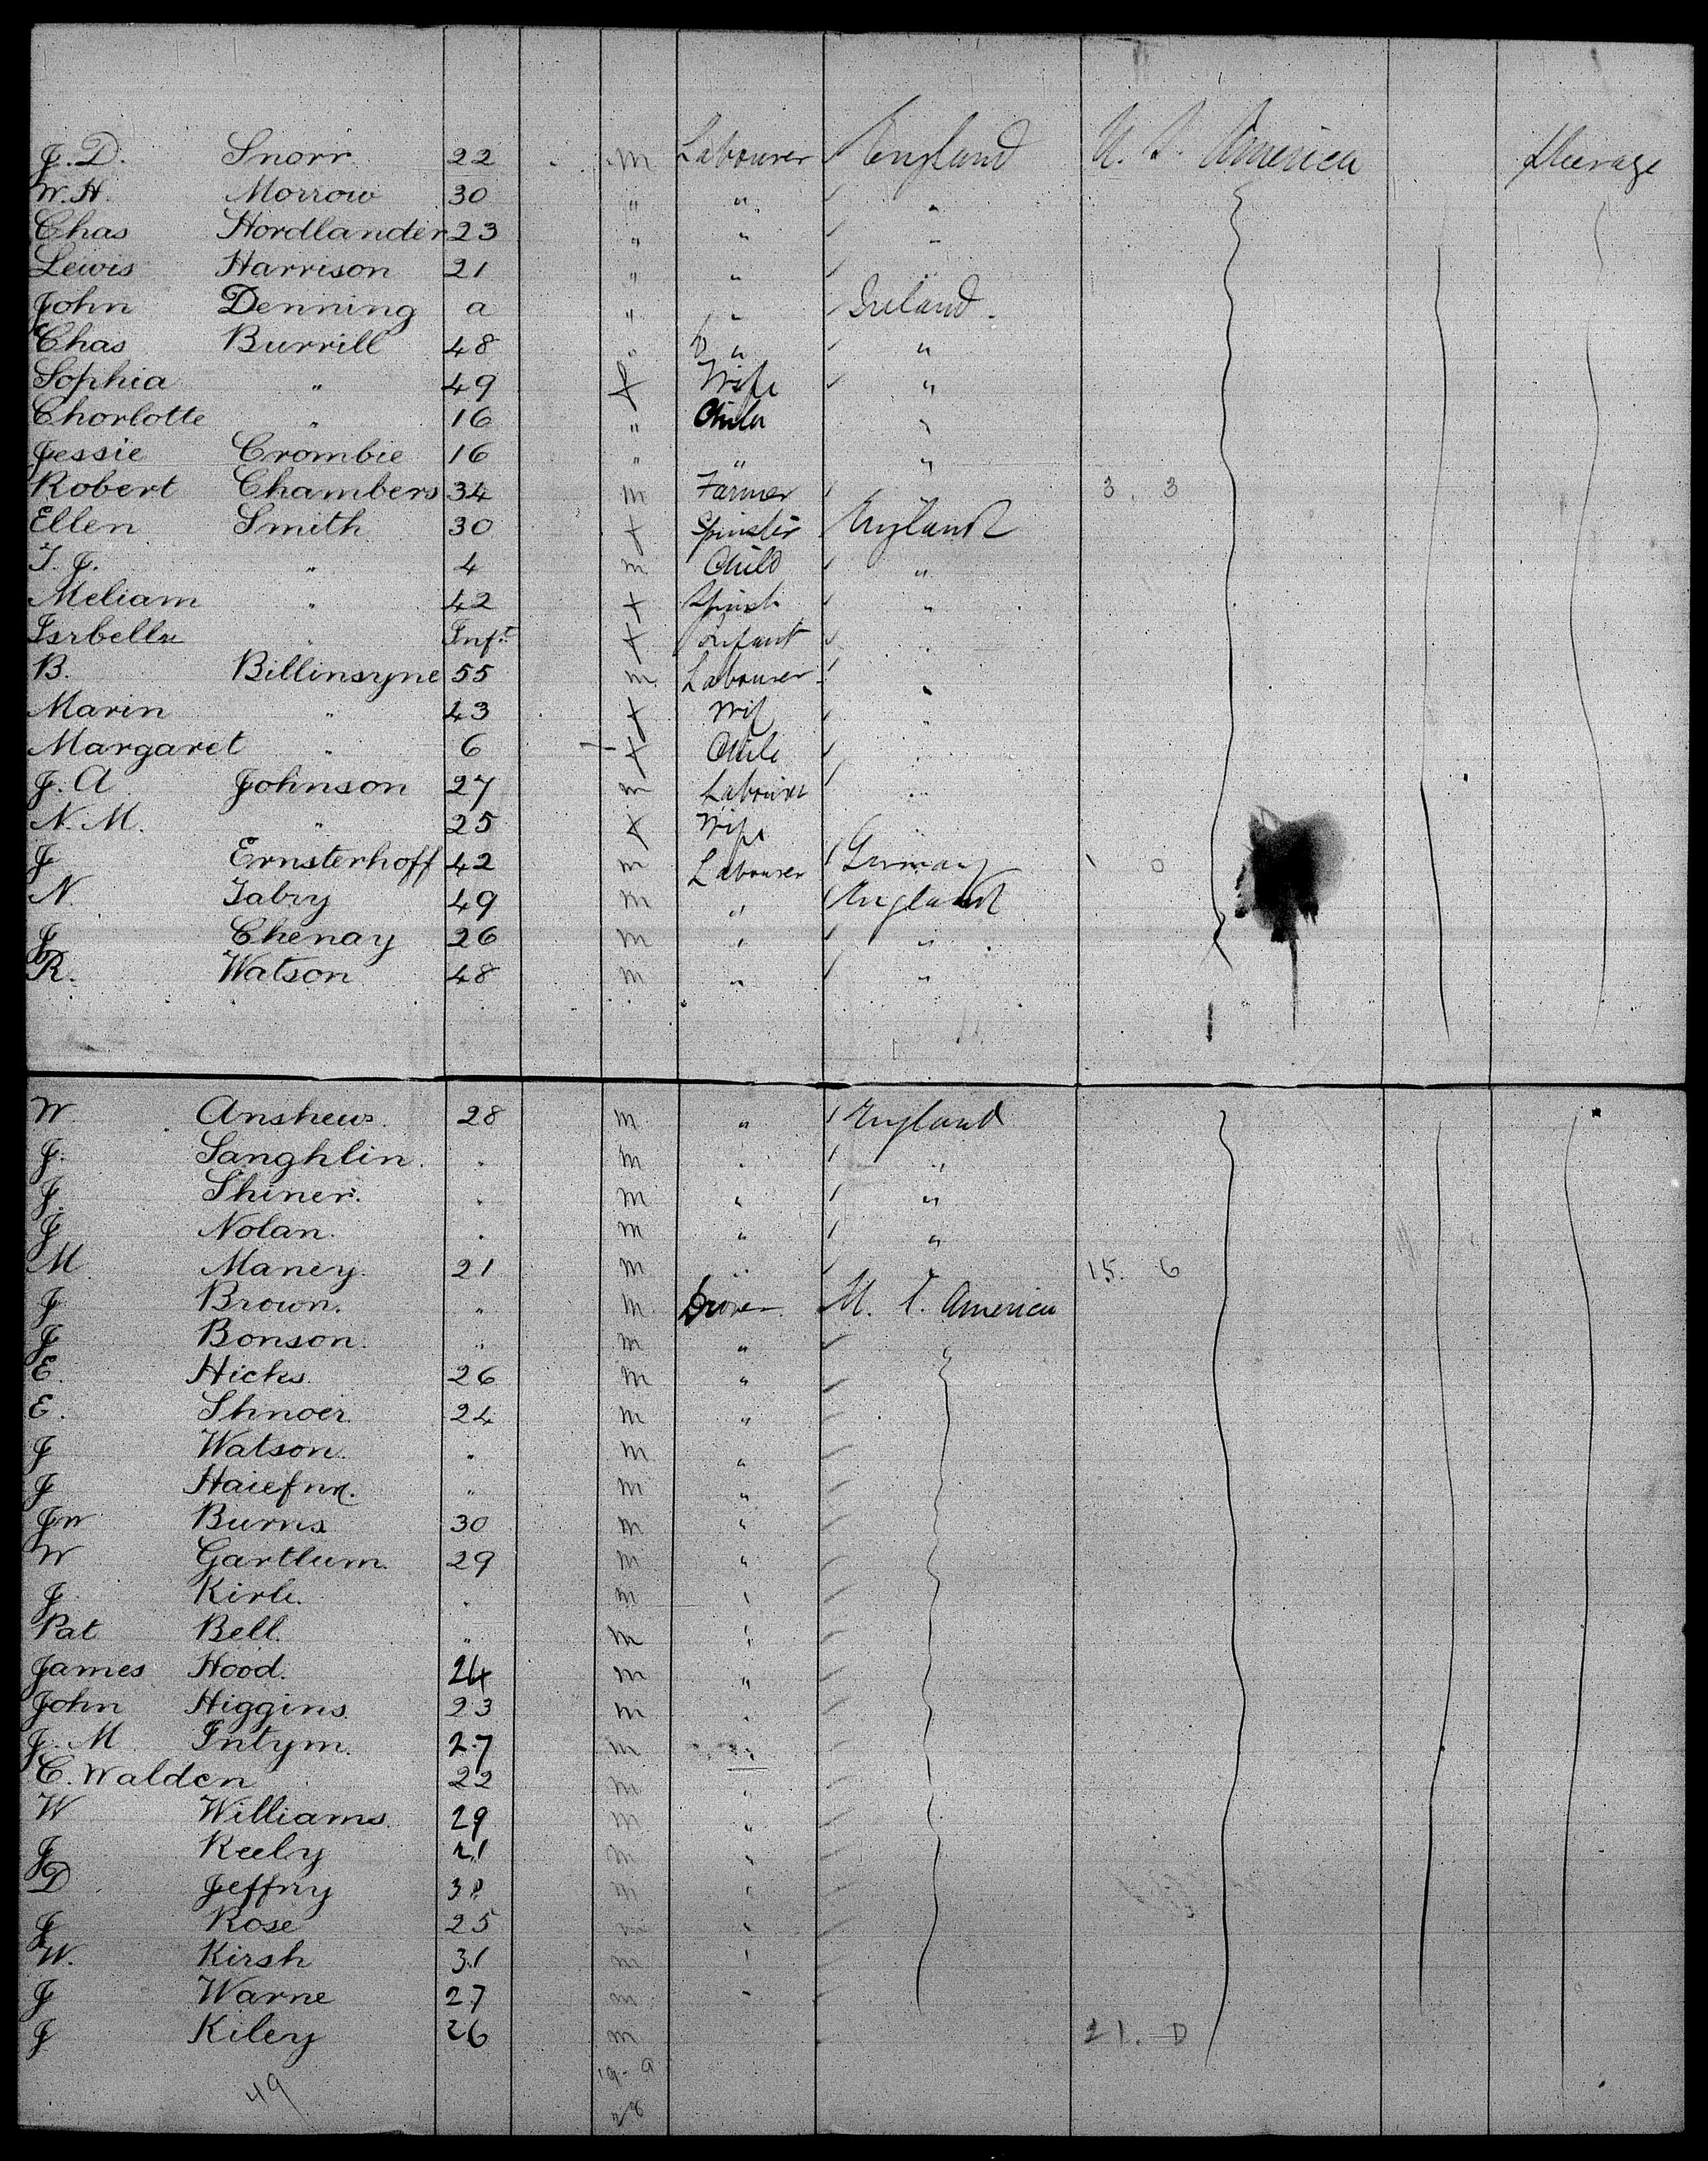 J. D. Snorr 22 m Labourer England U. S. America Steerage
W. H. Morrow 30 " " "
Chas Hordlander 23 " " "
Lewis Harrison 21 " " "
John Denning a " " Ireland.
Chas Burrill 48 " " "
Sophia " 49 f Wife "
Chorlotte " 16 " Child "
Jessie Crombie 16 " " "
Robert Chambers 34 m Farmer 3. 3
Ellen Smith 30 f Spinster England
T. J. " 4 m Child "
Meliam " 42 f Spinst "
Isrbella " Inft f Infant "
B. Billinsyne 55 m Labourer "
Marin " 43 f Wif "
Margaret " 6 f Child "
J. A. Johnson 27 m Labourer "
N. M. " 25 f Wife
J Ernsterhoff 42 m Labourer Germany
N. Tabry 49 m " England
J Chenay 26 m " "
R. Watson 48 m " "
W Anshews 28 m " England
J. Sanghlin " m " "
J. Shiner " m " "
J Nolan. " m " "
M Maney. 21 m " " 15. 6
J Brown. " m Drover U. S. America
J Bonson. " m " "
E. Hicks. 26 m "
E. Shnoer 24 m "
J Watson. " m "
J " m "
Jn Burns 30 m "
W Gartlum. 29 m "
J Kirle. " m "
Pat Bell. " m "
James Hood. 24 m "
John Higgins. 23 m "
J. M Intym. 27 m "
C. Walden 22 m "
W Williams. 29 m "
J Keely 21 m "
D Jeffny m "
J Rose 25 m "
W. Kirsh 31 m "
J Warne 27 m "
J Kiley 26 m 21.
49